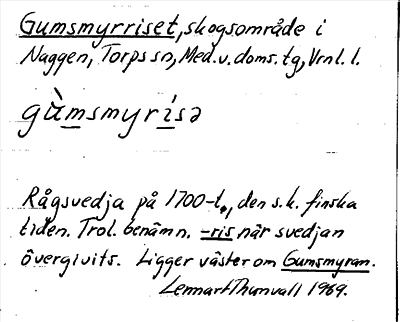 Gumsmyrriset, skogsområde i
Naggen, Torps sn, Med.v.doms.tg, Vrnl. l.
gùmsmyrísə
Rågsvedja på 1700-t., den s.k. finska
tiden. Trol. benämn. -ris när svedjan
övergivits. Ligger väster om Gumsmyran.
Lennart Thunvall 1969.